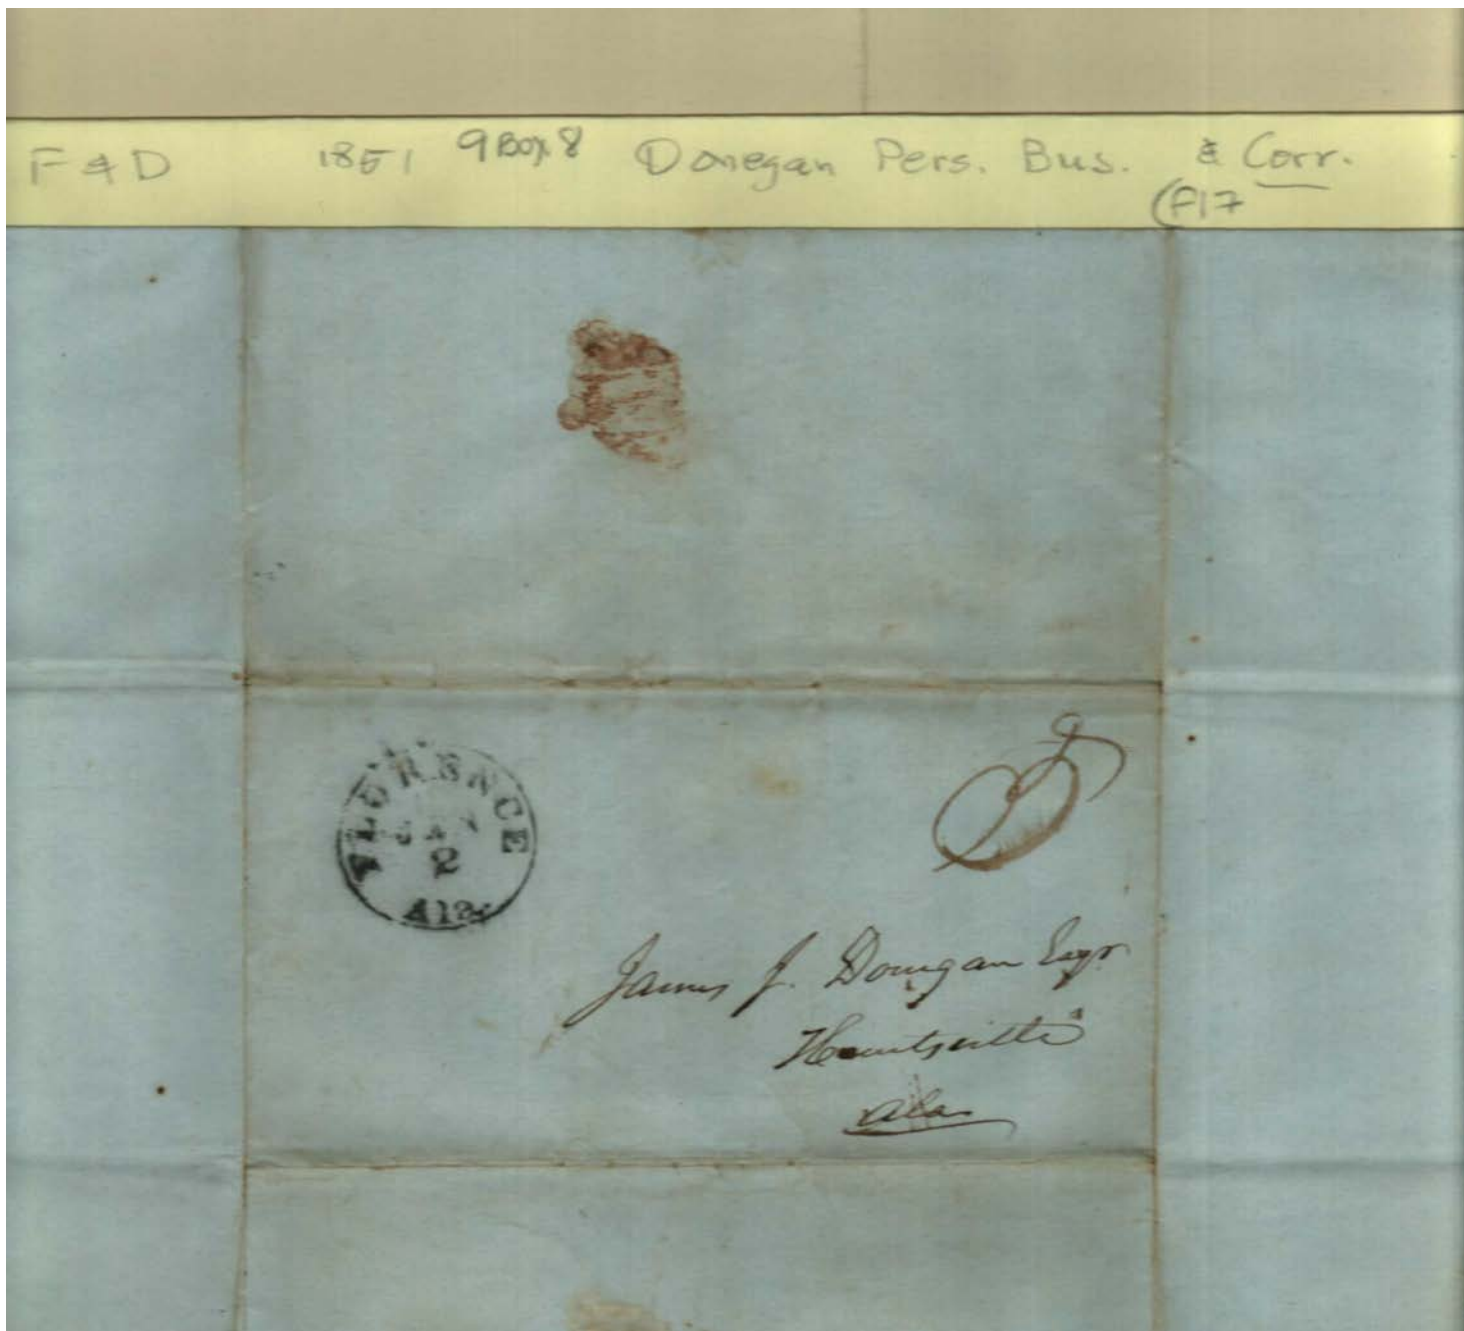 F & D 1851 9 Box 8 Donegan Pers. Bus. & Corr.
(F17
FLORENCE
JAN
2
Ala.
5
James J. Donegan Esqr
Huntsville
Ala